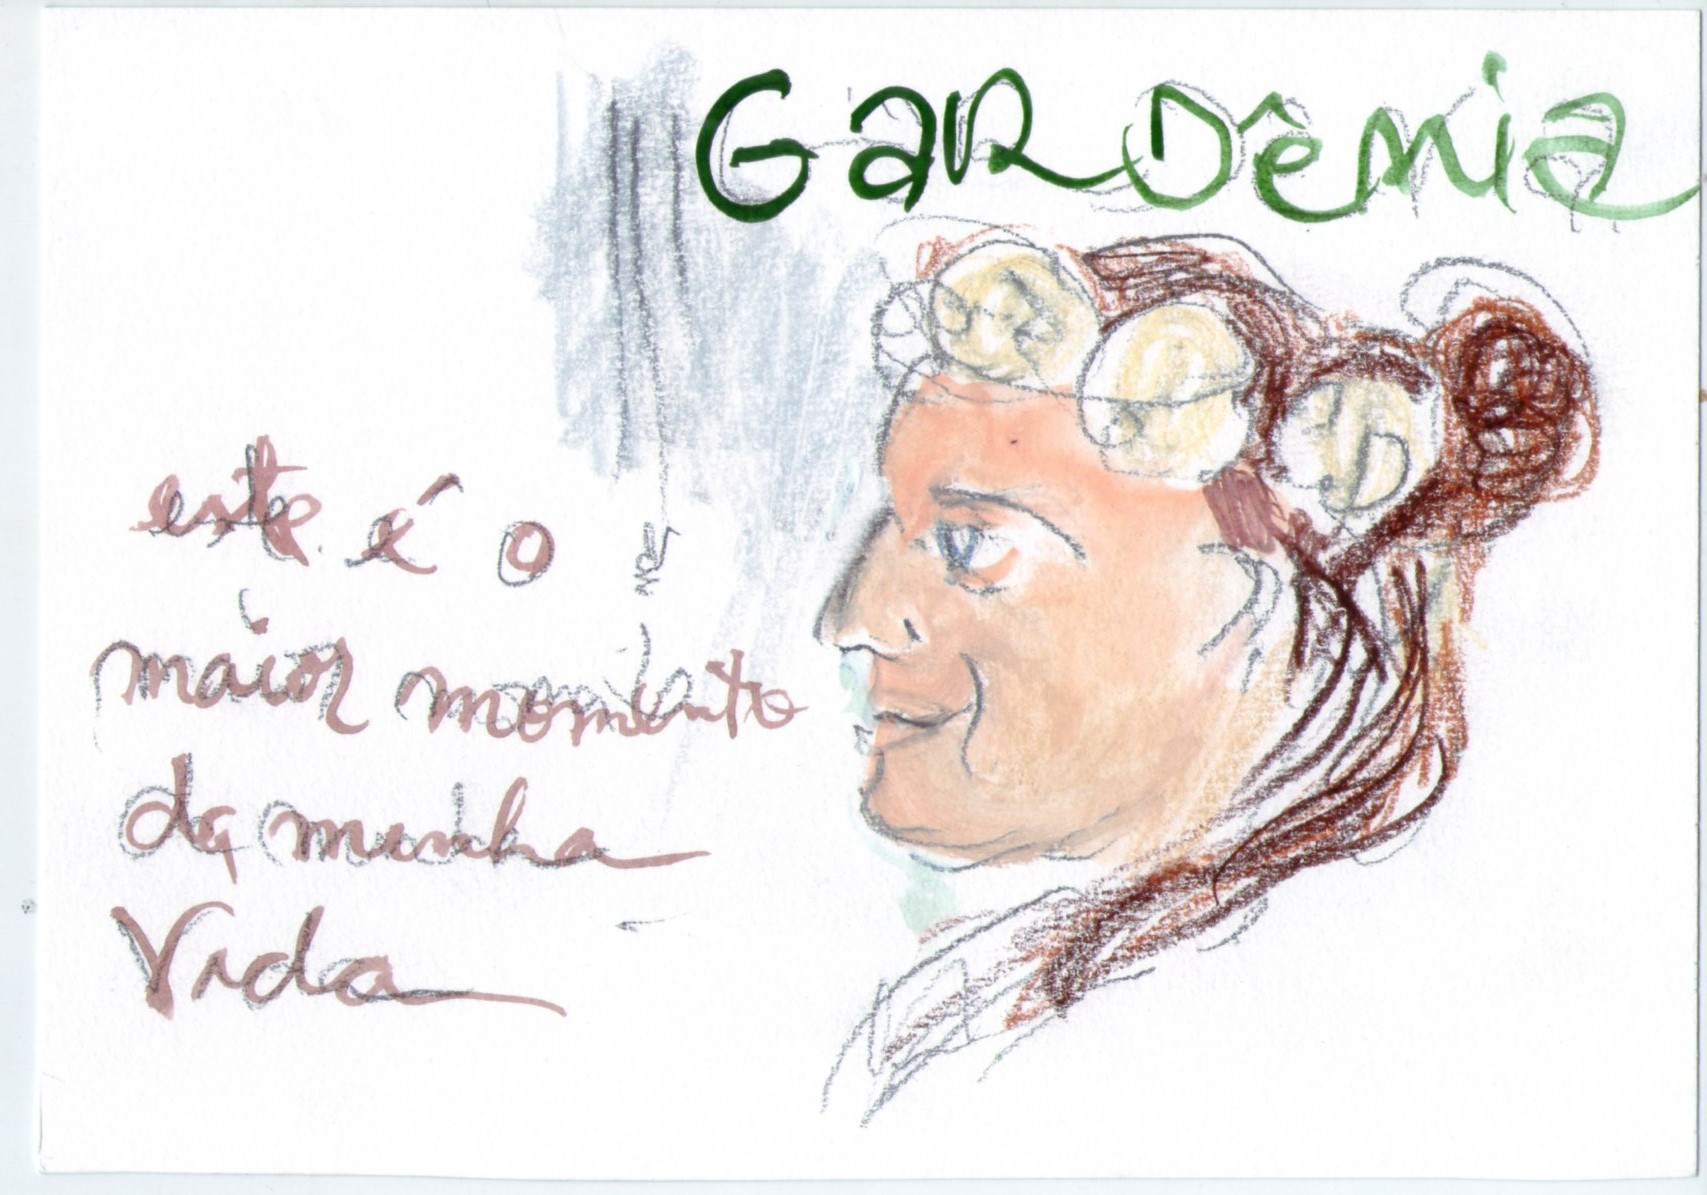 GarDênia
este é o
maior momento
da minha
Vida